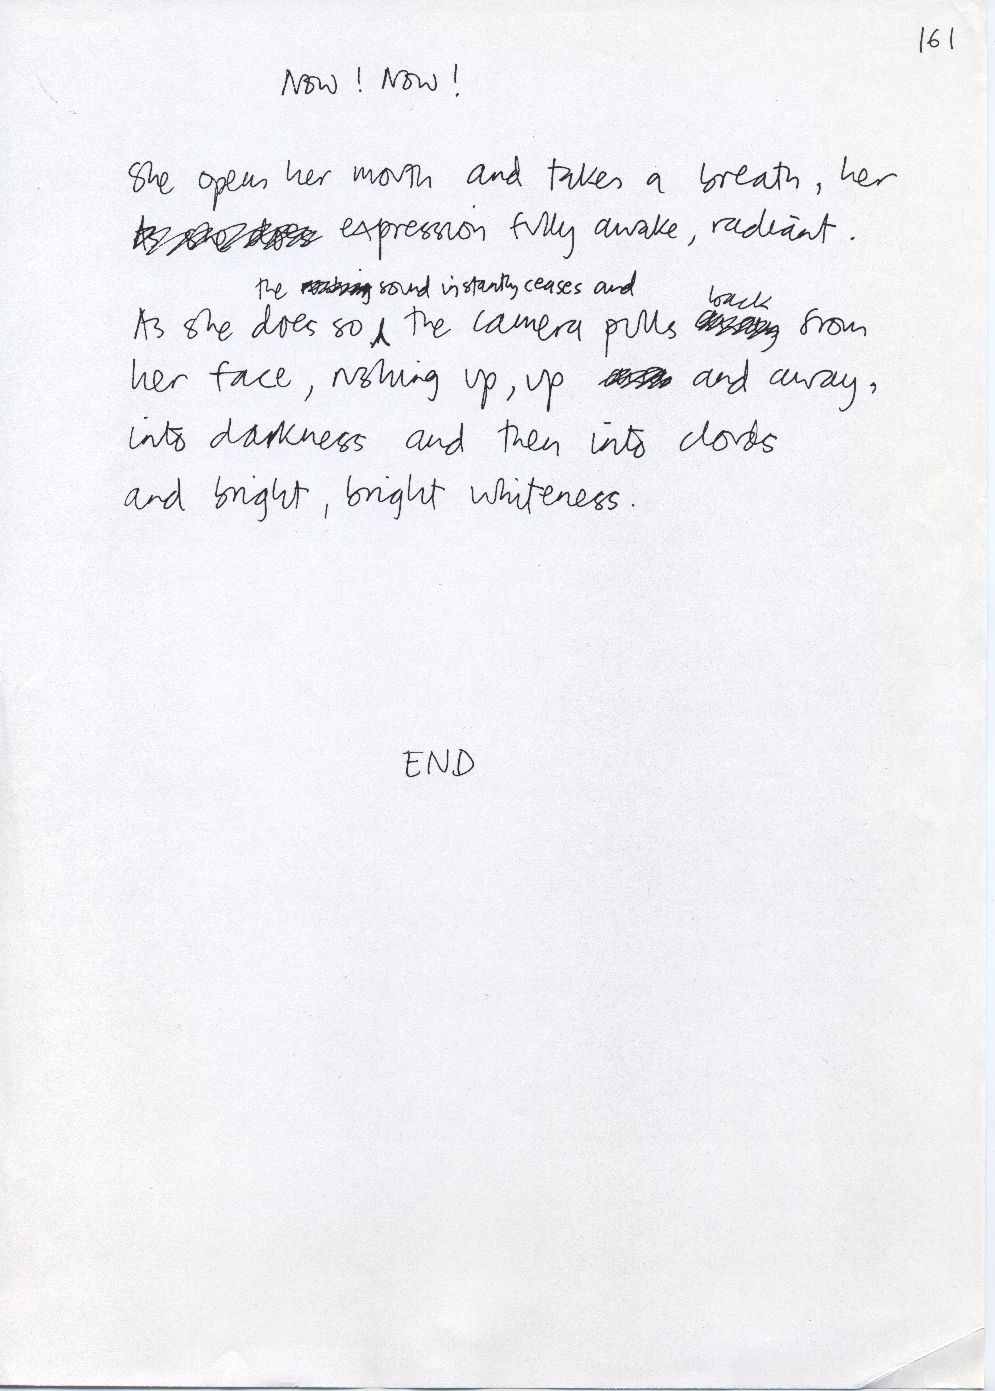 161
Now! Now!
She opens her mouth and takes a breath, her
As she does expression fully awake, radiant.
the rushing sound instantly ceases and
back
As she does so the camera pulls away from
her face, rushing up, up and away,
into darkness and then into clouds
and bright, bright whiteness.
END